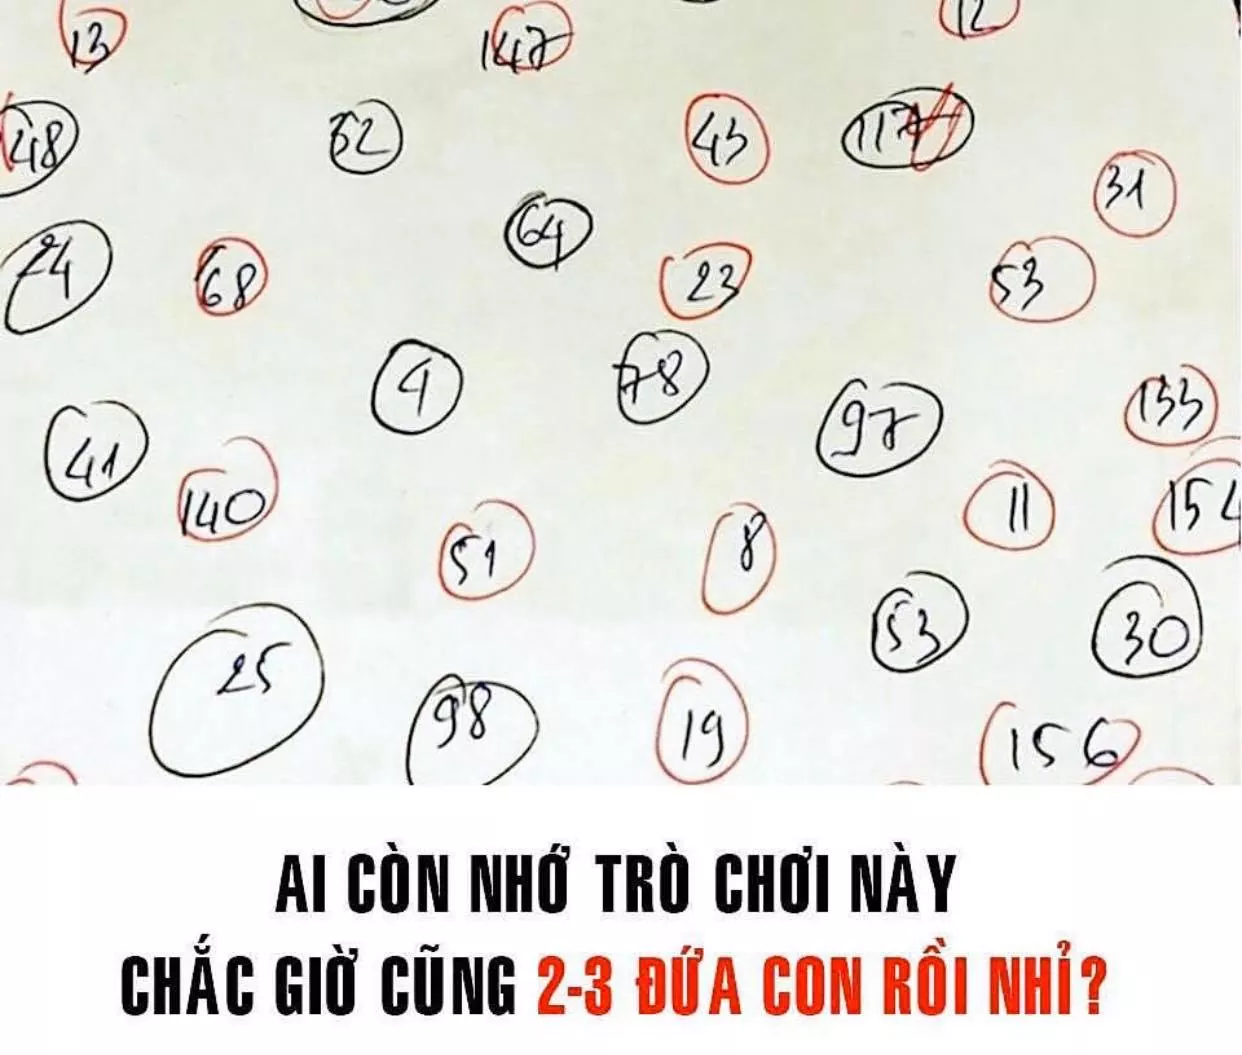 13 147 12
48 52 43 117
31
24 68 64 23 53
4 78 97 133
41 140 11 154
51 8
53 30
25 98 19 156
AI CÒN NHỚ TRÒ CHƠI NÀY
CHẮC GIỜ CŨNG 2-3 ĐỨA CON RỒI NHỈ?